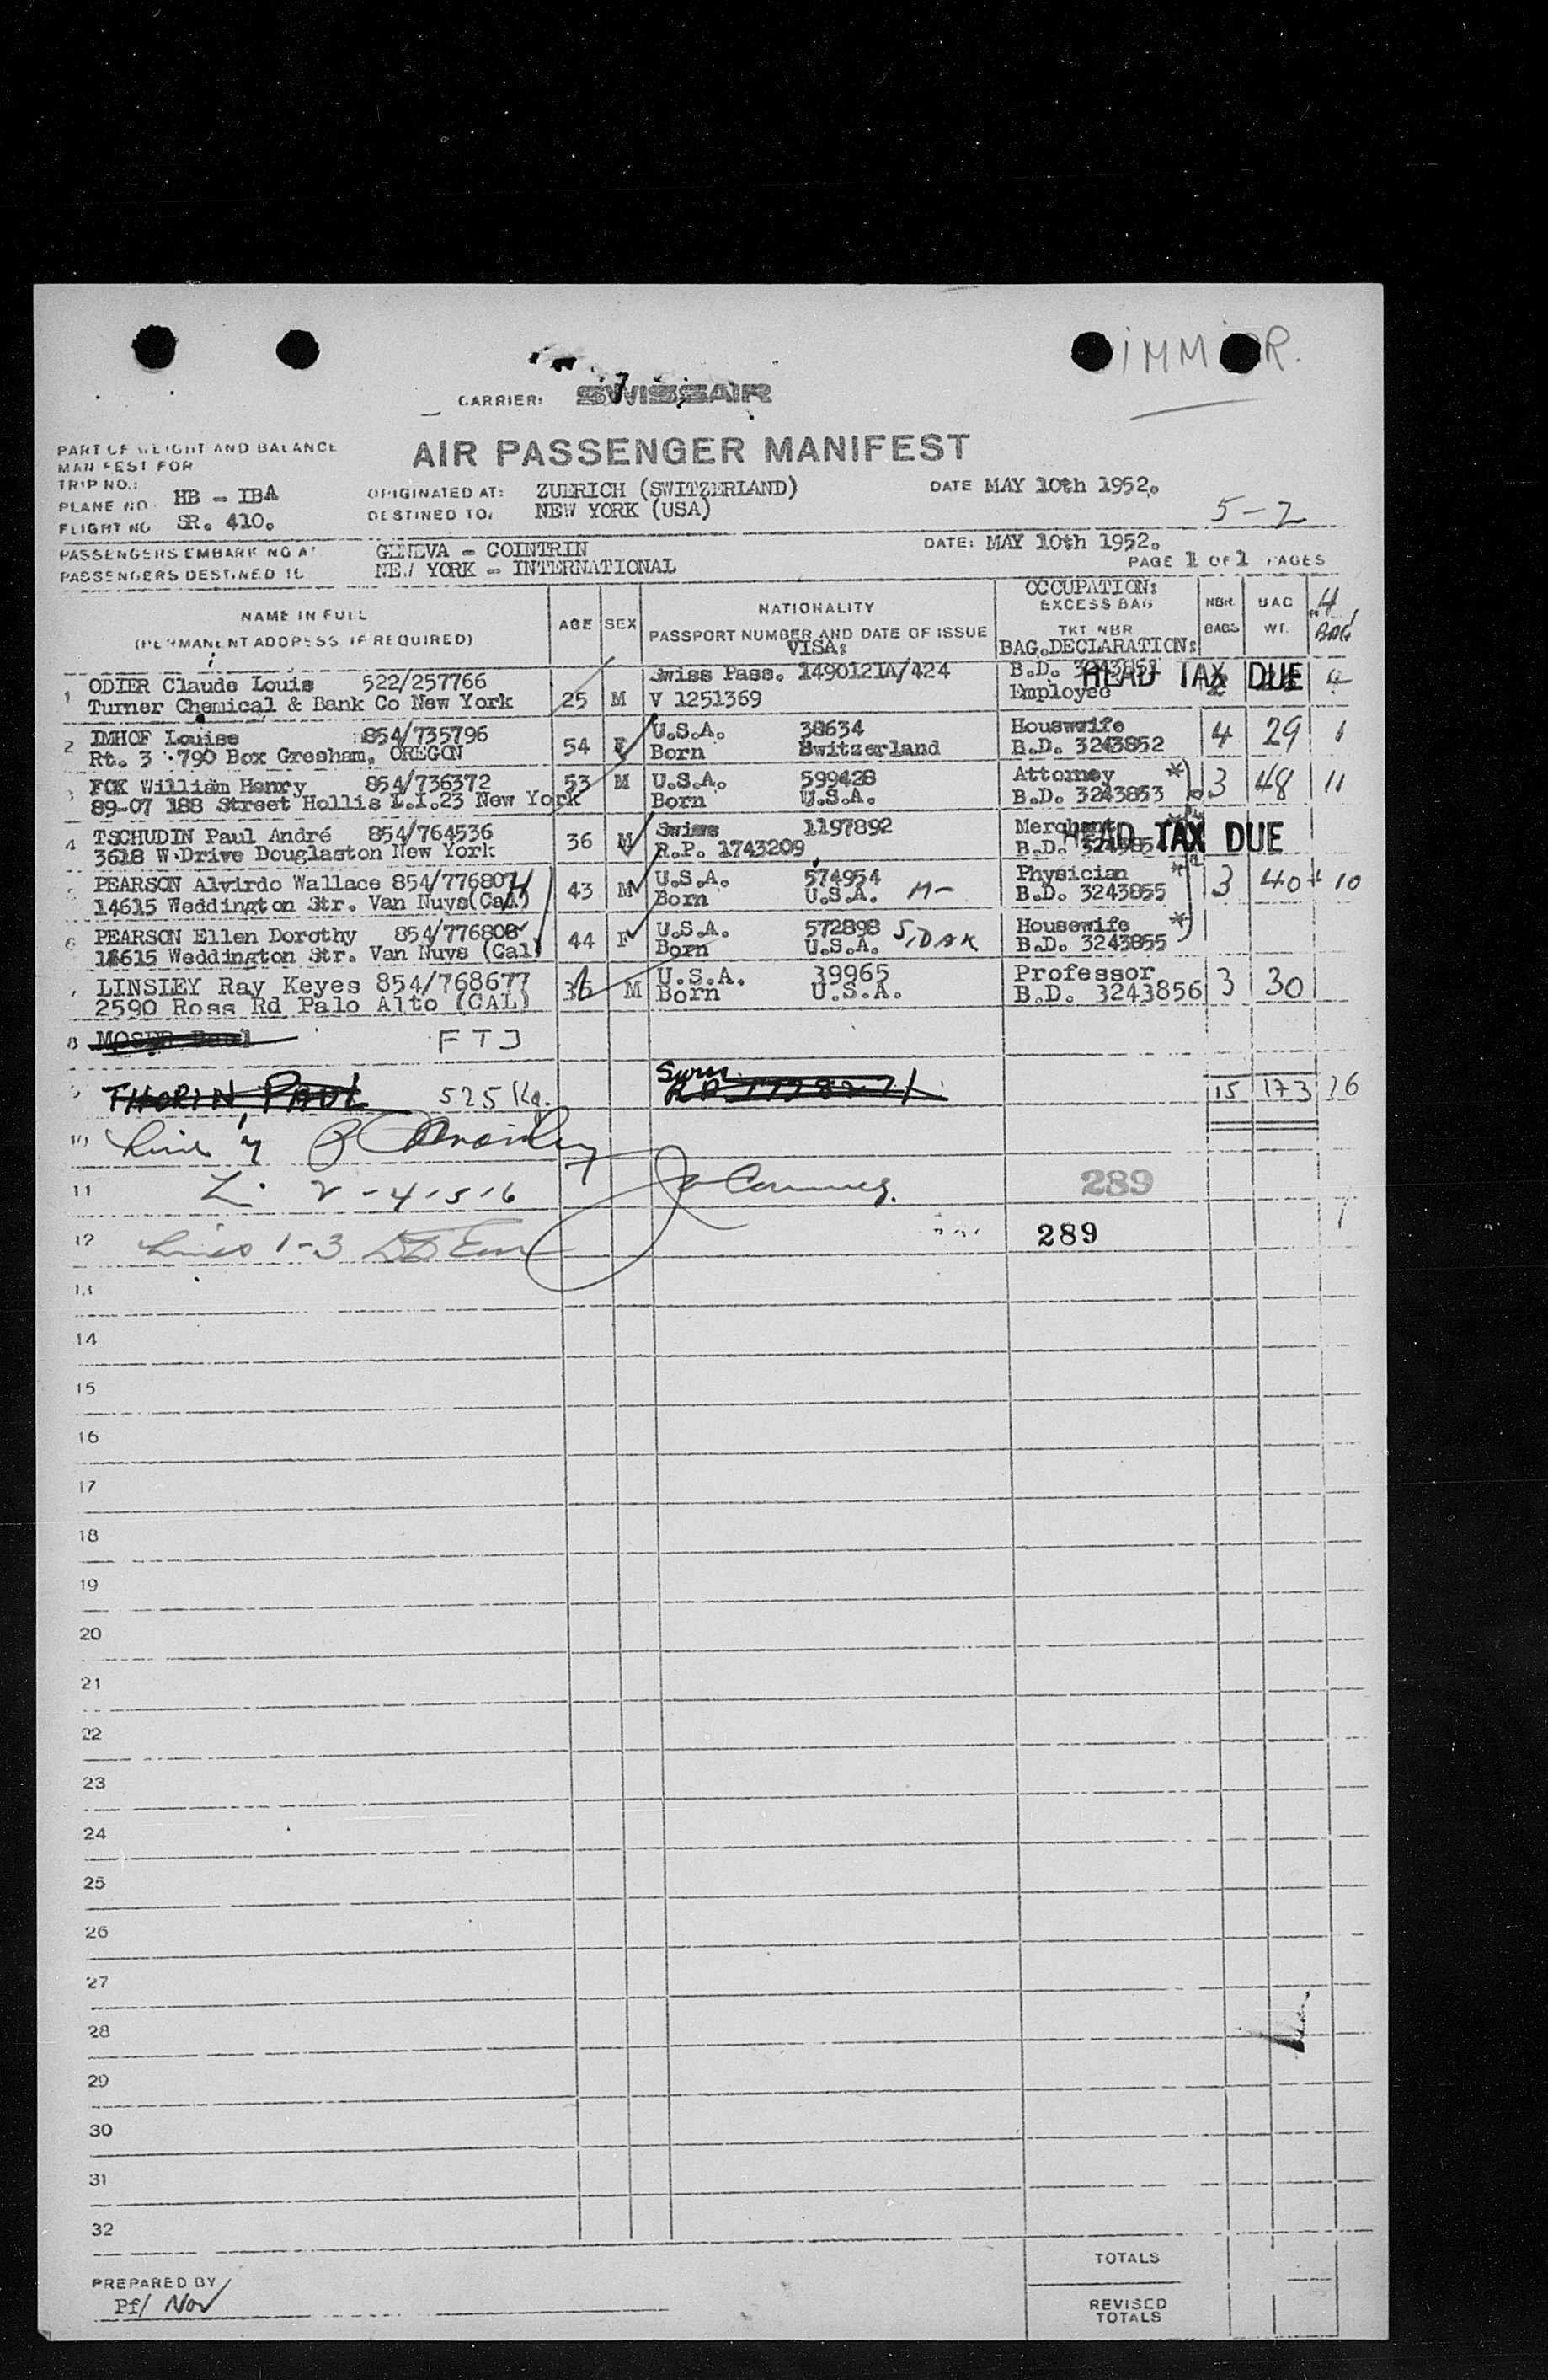 IMM R.
CARRIER: SWISSAIR
AIR PASSENGER MANIFEST
PART OF WEIGHT AND BALANCE
MANIFEST FOR
TRIP NO.:
PLANE NO. HB - IBA
FLIGHT NO SR. 410.
ORIGINATED AT: ZUERICH (SWITZERLAND)
DESTINED TO: NEW YORK (USA)
DATE MAY 10th 1952.
5-2
PASSENGERS EMBARKING AT GENEVA - COINTRIN
DATE: MAY 10th 1952.
PASSENGERS DESTINED TO NEW YORK - INTERNATIONAL
PAGE 1 OF 1 PAGES
NAME IN FULL
(PERMANENT ADDRESS IF REQUIRED)
AGE SEX
NATIONALITY
PASSPORT NUMBER AND DATE OF ISSUE
VISA:
OCCUPATION:
EXCESS BAG
TKT NBR
BAG.DECLARATION:
NBR BAGS
BAG WT.
H BAG
1 ODIER Claude Louis 522/257766 25 M Swiss Pass. 1490121A/424 B.D. 3243851 HEAD TAX DUE 4
Turner Chemical & Bank Co New York V 1251369 Employee
2 IMHOF Louise 854/735796 54 F U.S.A. 38634 Housewife 4 29 1
Rt. 3 790 Box Gresham, OREGON Born Switzerland B.D. 3243852
3 FOX William Henry 854/736372 53 M U.S.A. 599428 Attorney * 3 48 11
89-07 188 Street Hollis L.I.23 New York Born U.S.A. B.D. 3243853
4 TSCHUDIN Paul André 854/764536 36 M Swiss 1197892 Merchant HEAD TAX DUE
3618 W.Drive Douglaston New York R.P. 1743209 B.D.
PEARSON Alvirdo Wallace 854/776807 43 M U.S.A. 574954 Physician * 3 40 10
14615 Weddington Str. Van Nuys(Cal) Born U.S.A. M- B.D. 3243855
6 PEARSON Ellen Dorothy 854/776808 44 F U.S.A. 572898 S.DAK Housewife *
14615 Weddington Str. Van Nuys (Cal) Born U.S.A. B.D. 3243855
LINSLEY Ray Keyes 854/768677 36 M U.S.A. 39965 Professor 3 30
2590 Ross Rd Palo Alto (CAL) Born U.S.A. B.D. 3243856
8 MOSER Paul FTJ
THORIN, PAUL 525 Kg. Swiss 15 173 26
10 Line 7
11 L. 2-4-5-6 289
12 Lines 1-3 289
13
14
15
16
17
18
19
20
21
22
23
24
25
26
27
28
29
30
31
32
TOTALS
PREPARED BY
Pf/ Nov
REVISED TOTALS